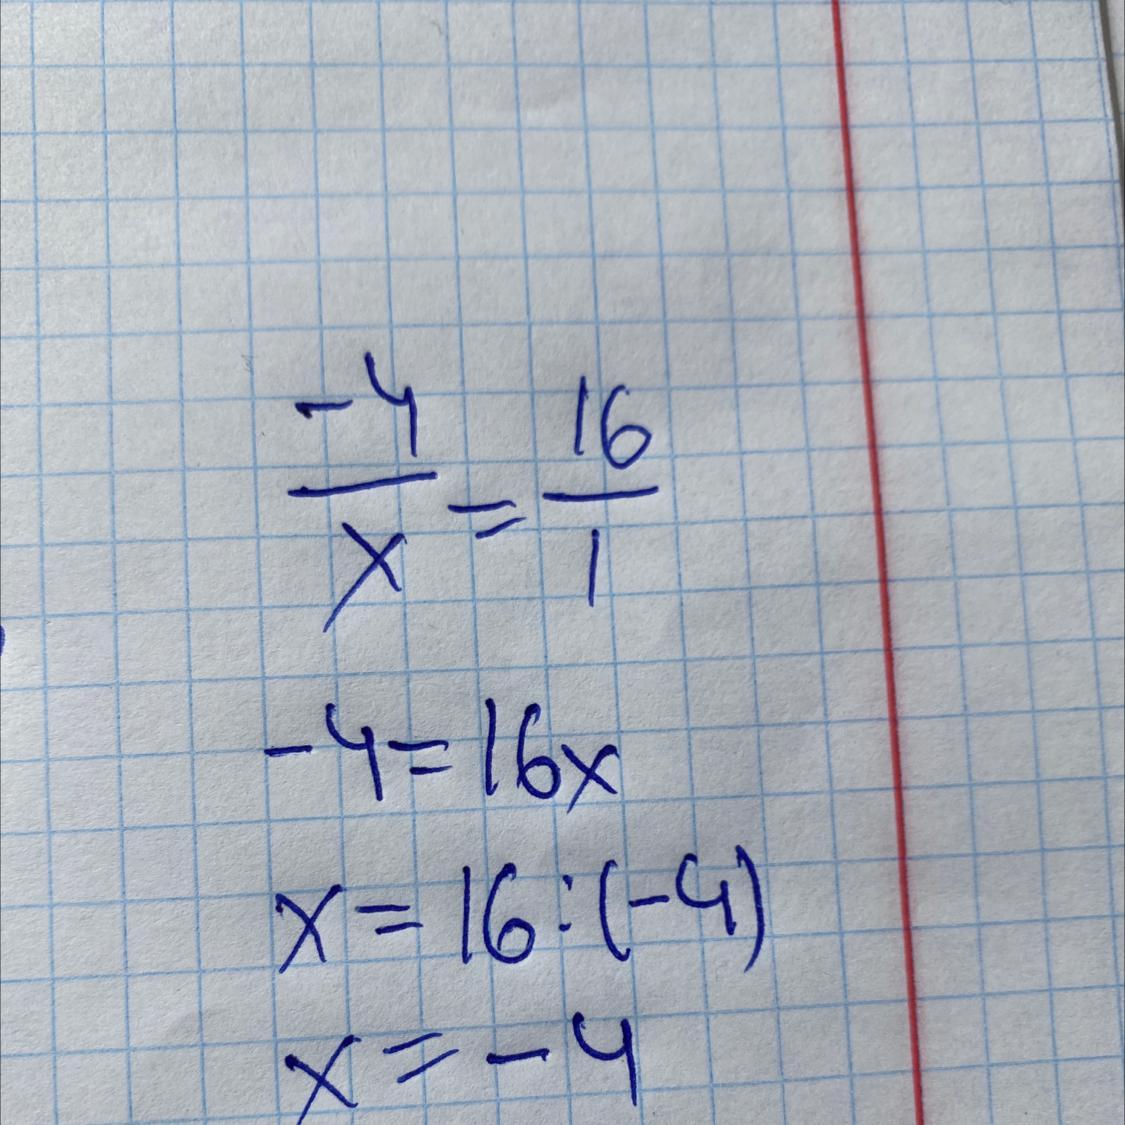 -4/x = 16/1
-4=16x
x = 16:(-4)
x = -4